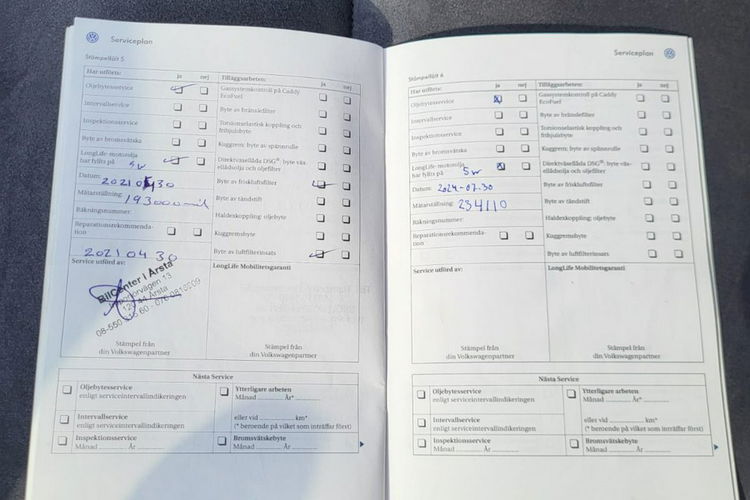 Serviceplan
Stämpelfält 5
Har utförts: ja nej
Oljebytesservice
Intervallservice
Inspektionsservice
Byte av bromsvätska
LongLife motorolja
har fyllts på 5w
Datum: 2021 04 30
Mätarställning: 193000 mil
Räkningsnummer
Reparationsrekommenda-
tion
2021 04 30
Service utförd av:
BilCenter i Årsta
120 44 Årsta
Stämpel från
din Volkswagenpartner
Tilläggsarbeten: ja nej
Gassystemkontroll på Caddy
EcoFuel
Byte av bränslefilter
Torsionselastisk koppling och
frihjulsbyte
Kuggrem: byte av spännrulle
Direktväxellåda DSG®: byte väx-
ellådsolja och oljefilter
Byte av friskluftsfilter
Byte av tändstift
Haldexkoppling: oljebyte
Kuggremsbyte
Byte av luftfilterinsats
LongLife Mobilitetsgaranti
Stämpel från
din Volkswagenpartner
Nästa Service
Oljebytesservice
enligt serviceintervallindikeringen
Intervallservice
enligt serviceintervallindikeringen
Inspektionsservice
Månad .......... År ..........
Ytterligare arbeten
Månad .......... År* ..........
eller vid .......... km*
(* beroende på vilket som inträffar först)
Bromsvätskebyte
Månad .......... År ..........
Serviceplan
Stämpelfält 6
Har utförts: ja nej
Oljebytesservice
Intervallservice
Inspektionsservice
Byte av bromsvätska
LongLife motorolja
har fyllts på 5w
Datum: 2024-07.30
Mätarställning: 234110
Räkningsnummer
Reparationsrekommenda-
tion
Service utförd av:
Stämpel från
din Volkswagenpartner
Tilläggsarbeten: ja nej
Gassystemkontroll på Caddy
EcoFuel
Byte av bränslefilter
Torsionselastisk koppling och
frihjulsbyte
Kuggrem: byte av spännrulle
Direktväxellåda DSG®: byte väx-
ellådsolja och oljefilter
Byte av friskluftsfilter
Byte av tändstift
Haldexkoppling: oljebyte
Kuggremsbyte
Byte av luftfilterinsats
LongLife Mobilitetsgaranti
Stämpel från
din Volkswagenpartner
Nästa Service
Oljebytesservice
enligt serviceintervallindikeringen
Intervallservice
enligt serviceintervallindikeringen
Inspektionsservice
Månad .......... År ..........
Ytterligare arbeten
Månad .......... År* ..........
eller vid .......... km*
(* beroende på vilket som inträffar först)
Bromsvätskebyte
Månad .......... År ..........